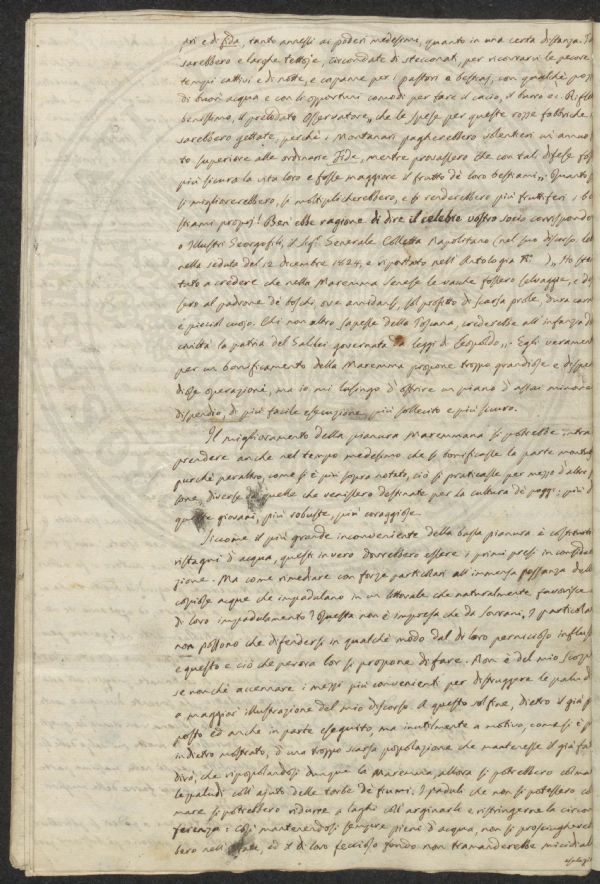 pri e di fida, tanto annessi ai poderi medesimi, quanto in una certa distanza.
sarebbero larghe tettoje, circondate di stecconati, per ricovrarvi le pecore
tempi cattivi e di notte, e capanne per i pastori o bestiaj, con qualche pozzo
di buon acqua e con li opportuni comodi per fare il cacio, il burro ec.
benissimo, il prelodato Osservatore, che le spese per queste rozze fabbriche
sarebbero gettate, perchè i Montanari pagherebbero volentieri un annuo
to superiore alle ordinarie Fide, mentre provassero che con tali difese fos
più sicura la vita loro e fosse maggiore il frutto de loro bestiami,, Quanto
si migliorerebbero, si moltiplicherebbero, e si renderebbero più fruttiferi i be
stiami proprj! Ben ebbe ragione di dire il celebre vostro socio corrispondente
o Illustri Georgofili, il Sigr. Generale Colletta Napolitano (nel suo discorso
nella seduta del 12 dicembre 1824, e riportato nell'Antologia No. ) ,, Ho
tato a credere che nella Maremma Senese le vacche fossero selvagge, e
sero al padrone de boschi, ove annidansi, sol profitto di scarsa prole, dura carne
e picciol cuojo. Chi non altro sapesse della Toscana, crederebbe all'infanzia di
civiltà la patria del Galilei governata da leggi di Leopoldo,,. Egli verament
per un bonificamento della Maremma propone troppo grandiose e dispen
diose operazioni, ma io mi lusingo d'offrire un piano d'assai minore
dispendio, di più facile esecuzione, più sollecito e più sicuro.
Il miglioramento della pianura Maremmana si potrebbe intra
prendere anche nel tempo medesimo che si bonificasse la parte montuosa
purchè peraltro, come si è più sopra notato, ciò si praticasse per mezzo d'altre per
sone, diverse da quelle che venissero destinate per la cultura de poggi; più
giovani, più robuste, più coraggiose.
Siccome il più grande inconveniente della bassa pianura è costituito
ristagni d'acqua, questi in vero dovrebbero essere i primi presi in consider
zione. Ma come rimediare con forze particolari all'immensa possanza delle
copiose acque che impadulano in un littorale che naturalmente favorisce
di loro impadulamento? Questa non è impresa che da Sovrani. I particola
non possono che difendersi in qualche modo dal di loro pernicioso influsso
e questo è ciò che per ora lor si propone di fare. Non è del mio scopo
se non che accennare i mezzi più convenienti per distruggere le paludi
a maggior illustrazione del mio discorso. A questo sol fine, dietro il già
posto ed anche in parte eseguito, ma inutilmente a motivo, come si è
indietro mostrato, d'una troppo scarsa popolazione che mantenesse il già fa
dirò, che ripopolandosi dunque la Maremma, allora si potrebbero colma
le paludi coll'ajuto delle torbe de fiumi. I paduli che non si potessero co
mare si potrebbero ridurre a laghi coll'arginarle e ristringerne la circon
ferenza: così mantenendosi sempre pieni d'acqua, non si prosciugherebb
bero nell'estate, ed il di loro feccioso fondo non tramanderebbe micidial